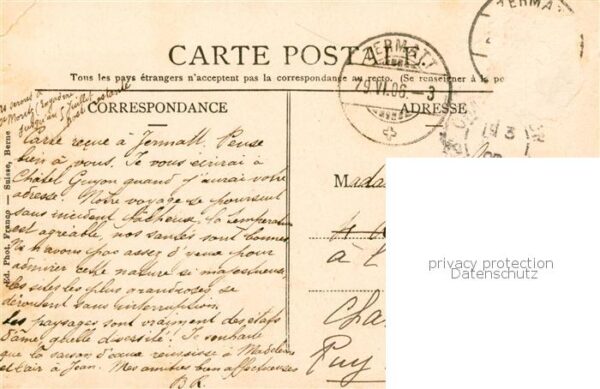 ZERMATT
CARTE POSTALE.
Tous les pays étrangers n'acceptent pas la correspondance au recto. (Se renseigner à la po
ZERMATT
29.VI.06.-3
CORRESPONDANCE
ADRESSE
juillet
post restante
Carte reçue à Zermatt. Pense
bien à vous. Je vous écrirai à
Châtel Guyon quand j'aurai votre
adresse. Notre voyage se poursuit
sans incident fâcheux, la température
est agréable, nos santés sont bonnes
Ns n'avons pas assez d'yeux pour
admirer cette nature si majestueuse,
les sites les plus grandioses se
déroulent sans interruption
Les paysages sont vraiment des états
d'âme quelle diversité! Je souhaite
que la saison d'eaux réussisse à Madeleine
et l'air à Jean. Mes amitiés bien affectueuses
B.R.
Mada
à l
Cha
Puy
Ed. Phot. Franco-Suisse, Berne
privacy protection
Datenschutz